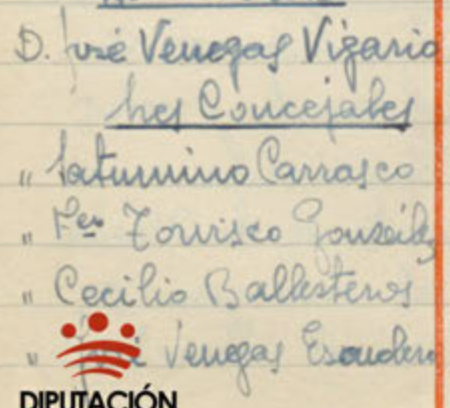 D. José Venegas Vigario
Sres Concejales
" Saturnino Carrasco
" Fco Torvisco González
" Cecilio Ballesteros
" José Venegas Escudero
DIPUTACIÓN